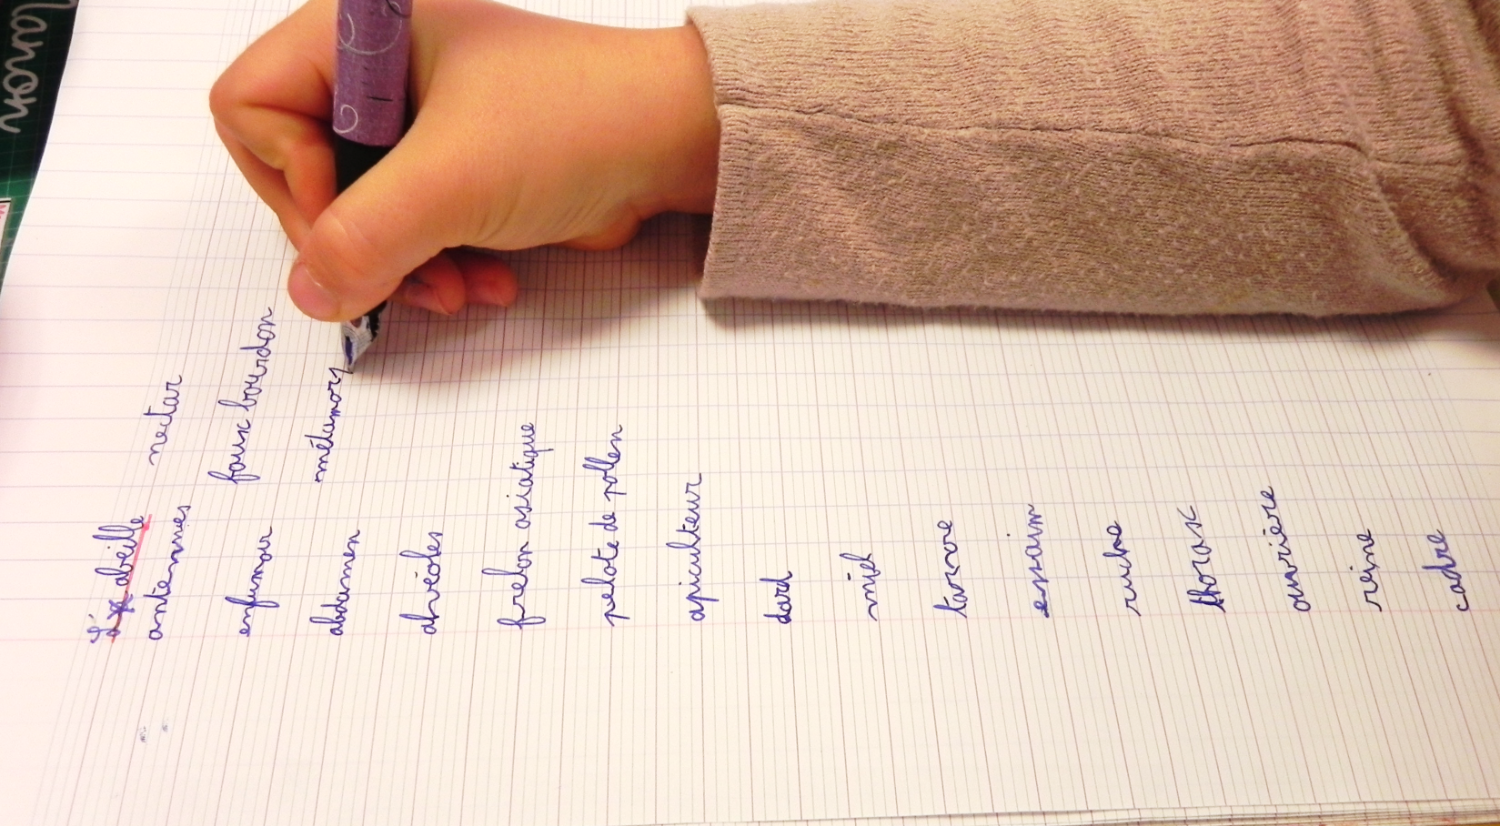 Manon
L'abeille
antennes nectar
enfumoir faux bourdon
abdomen métamor
alvéoles
frelon asiatique
pelote de pollen
apiculteur
dard
miel
essaim
ruche
thorax
ouvrière
reine
cadre